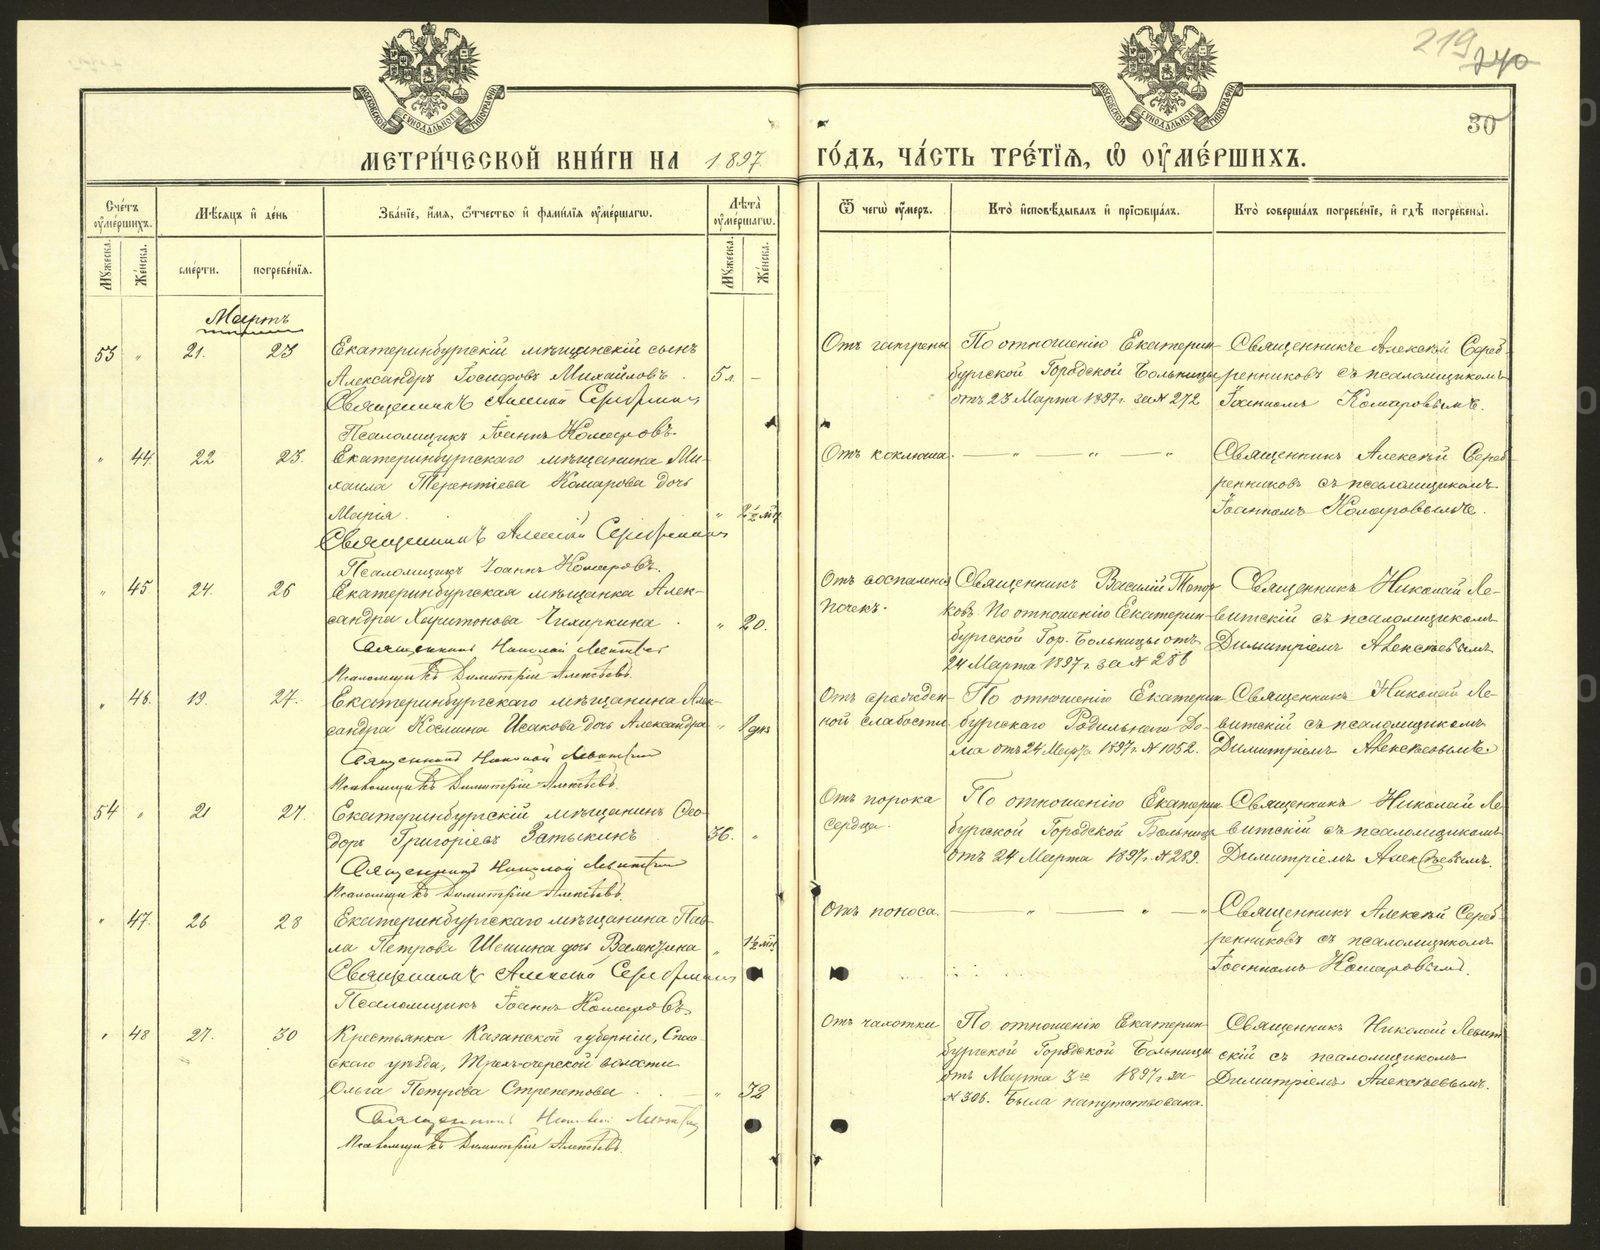 219
240
30
МОСКОВСКОЙ СѴНОДАЛЬНОЙ ТИПОГРАФІИ
МОСКОВСКОЙ СѴНОДАЛЬНОЙ ТИПОГРАФІИ
МЕТРИ́ЧЕСКОЙ КНИ́ГИ НА 1897 ГО́ДЪ, ЧА́СТЬ ТРЕ́ТІѦ, Ѿ ОУМЕ́РШИХЪ.
Сче́тъ оуме́ршихъ.
Мѣ́сяцъ и де́нь
Зва́нїе, и́мя, ѻ́тчество и фами́лїя оуме́ршагѡ.
Лѣ́та оуме́ршагѡ.
Ѿ чегѡ̀ оу́меръ.
Кто̀ исповѣ́дывалъ и прїѡбща́лъ.
Кто̀ соверша́лъ погребе́нїе, и гдѣ̀ погребены̀.
Мꙋ́жеска.
Же́нска.
сме́рти.
погребе́нїя.
Мꙋ́жеска.
Же́нска.
Мартъ
53 " 21. 23 Екатеринбургскій мѣщанскій сынъ
Александръ Іосифовъ Михайловъ. 5 л. —
Священникъ Алексій Серебренниковъ
Псаломщикъ Іоаннъ Комаровъ.
Отъ гангрены
По отношенію Екатерин-
бургской Городской Больницы
отъ 23 Марта 1897 г. за № 272
Священникъ Алексѣй Сереб-
ренниковъ съ псаломщикомъ
Іоанномъ Комаровымъ.
" 44 22 23. Екатеринбургскаго мѣщанина Ми-
хаила Терентіева Комарова дочь
Марія. " 2½ мц
Священникъ Алексій Серебренниковъ
Псаломщикъ Іоаннъ Комаровъ.
Отъ коклюша. — " — " — "
Священникъ Алексѣй Сереб-
ренниковъ съ псаломщикомъ
Іоанномъ Комаровымъ.
" 45 24. 26 Екатеринбургская мѣщанка Алек-
сандра Харитонова Чихиркина. " 20.
Священникъ Николай Левитскій
Псаломщикъ Димитрій Алексѣевъ.
Отъ воспаленія
почекъ.
Священникъ Василій
ковъ По отношенію Екатерин-
бургской Гор. Больницы отъ
24 Марта 1897 г. за № 288
Священникъ Николай Ле-
витскій съ псаломщикомъ
Димитріемъ Алексѣевымъ
" 46. 19. 27. Екатеринбургскаго мѣщанина Алек-
сандра Космина Исакова дочь Александра " 1 дня
Священникъ Николай Левитскій
Псаломщикъ Димитрій Алексѣевъ.
Отъ врожден-
ной слабости
По отношенію Екатерин-
бургскаго Родильнаго До-
ма отъ 24 Марта 1897 г. № 1052.
Священникъ Николай Ле-
витскій съ псаломщикомъ
Димитріемъ Алексѣевымъ
54 " 21 27. Екатеринбургскій мѣщанинъ Ѳео-
доръ Григоріевъ Затыкинъ 36. "
Священникъ Николай Левитскій
Псаломщикъ Димитрій Алексѣевъ.
Отъ порока
сердца.
По отношенію Екатерин-
бургской Городской Больницы
отъ 24 Марта 1897 г. № 289.
Священникъ Николай Ле-
витскій съ псаломщикомъ
Димитріемъ Алексѣевымъ.
" 47. 26 28 Екатеринбургскаго мѣщанина Пав-
ла Петрова Шешина дочь Валентина " 1½ мц
Священникъ Алексій Серебренниковъ
Псаломщикъ Іоаннъ Комаровъ
Отъ поноса. — " — " — "
Священникъ Алексѣй Сереб-
ренниковъ съ псаломщикомъ
Іоанномъ Комаровымъ.
" 48 27. 30 Крестьянка Казанской губерніи, Спас-
скаго уѣзда, Трехъ-озерской волости
Ольга Петрова Стрепетова. — " 32
Священникъ Николай Левитскій
Псаломщикъ Димитрій Алексѣевъ.
Отъ чахотки
По отношенію Екатерин-
бургской Городской Больницы
отъ Марта 3 го 1897 г. за
№ 306. Была напутствована.
Священникъ Николай Левит-
скій съ псаломщикомъ
Димитріемъ Алексѣевымъ.